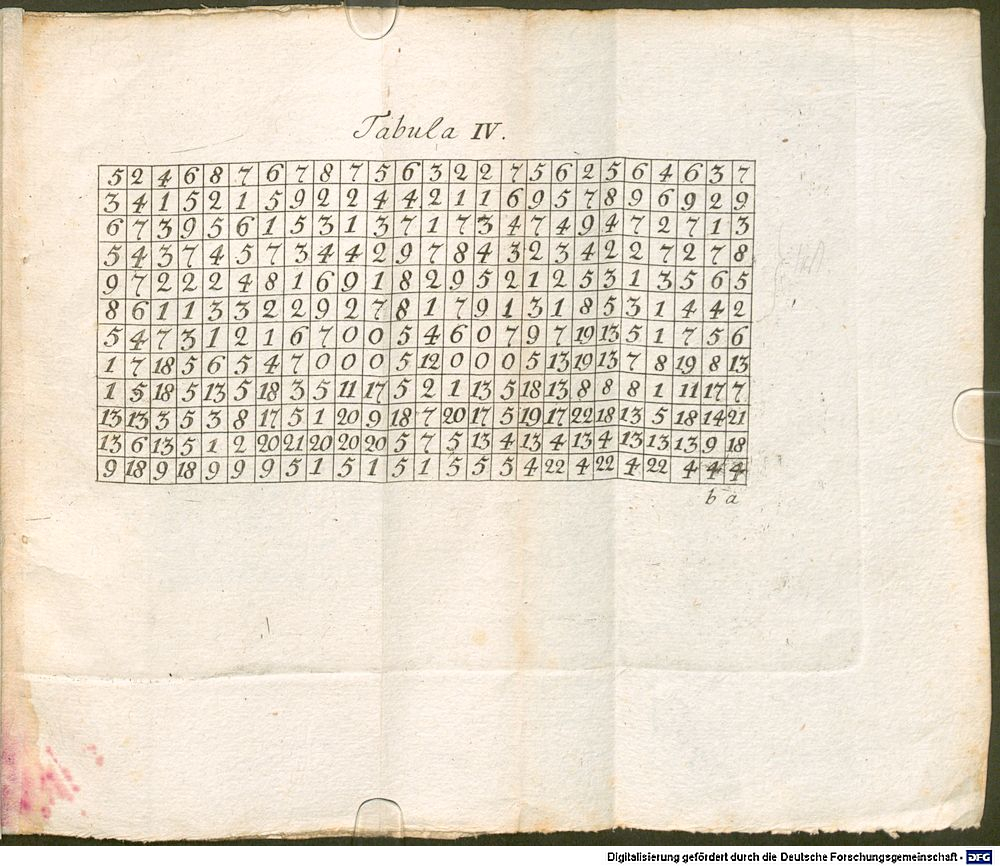 Tabula IV.
5 2 4 6 8 7 6 7 8 7 5 6 3 2 2 7 5 6 2 5 6 4 6 3 7
3 4 1 5 2 1 5 9 2 2 4 4 2 1 1 6 9 5 7 8 9 6 9 2 9
6 7 3 9 5 6 1 5 3 1 3 7 1 7 3 4 7 4 9 4 7 2 7 1 3
5 4 3 7 4 5 7 3 4 4 2 9 7 8 4 3 2 3 4 2 2 7 2 7 8
9 7 2 2 2 4 8 1 6 9 1 8 2 9 5 2 1 2 5 3 1 3 5 6 5
8 6 1 1 3 3 2 2 9 2 7 8 1 7 9 1 3 1 8 5 3 1 4 4 2
5 4 7 3 1 2 1 6 7 0 0 5 4 6 0 7 9 7 19 13 5 1 7 5 6
1 7 18 5 6 5 4 7 0 0 0 5 12 0 0 0 5 13 19 13 7 8 19 8 13
1 5 18 5 13 5 18 3 5 11 17 5 2 1 13 5 18 13 8 8 8 1 11 17 7
13 13 3 5 3 8 17 5 1 20 9 18 7 20 17 5 19 17 22 18 13 5 18 14 21
13 6 13 5 1 2 20 21 20 20 20 5 7 5 13 4 13 4 13 4 13 13 13 9 18
9 18 9 18 9 9 9 5 1 5 1 5 1 5 5 5 4 22 4 22 4 22 4 4 4
b a
Digitalisierung gefördert durch die Deutsche Forschungsgemeinschaft - DFG